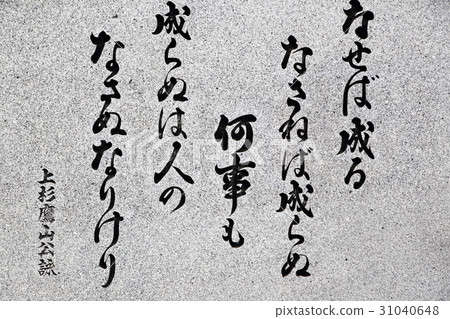 なせば成る
なさねば成らぬ
何事も
成らぬは人の
なさぬなりけり
上杉鷹山公詠
PIXTA
pixta.jp - 31040648